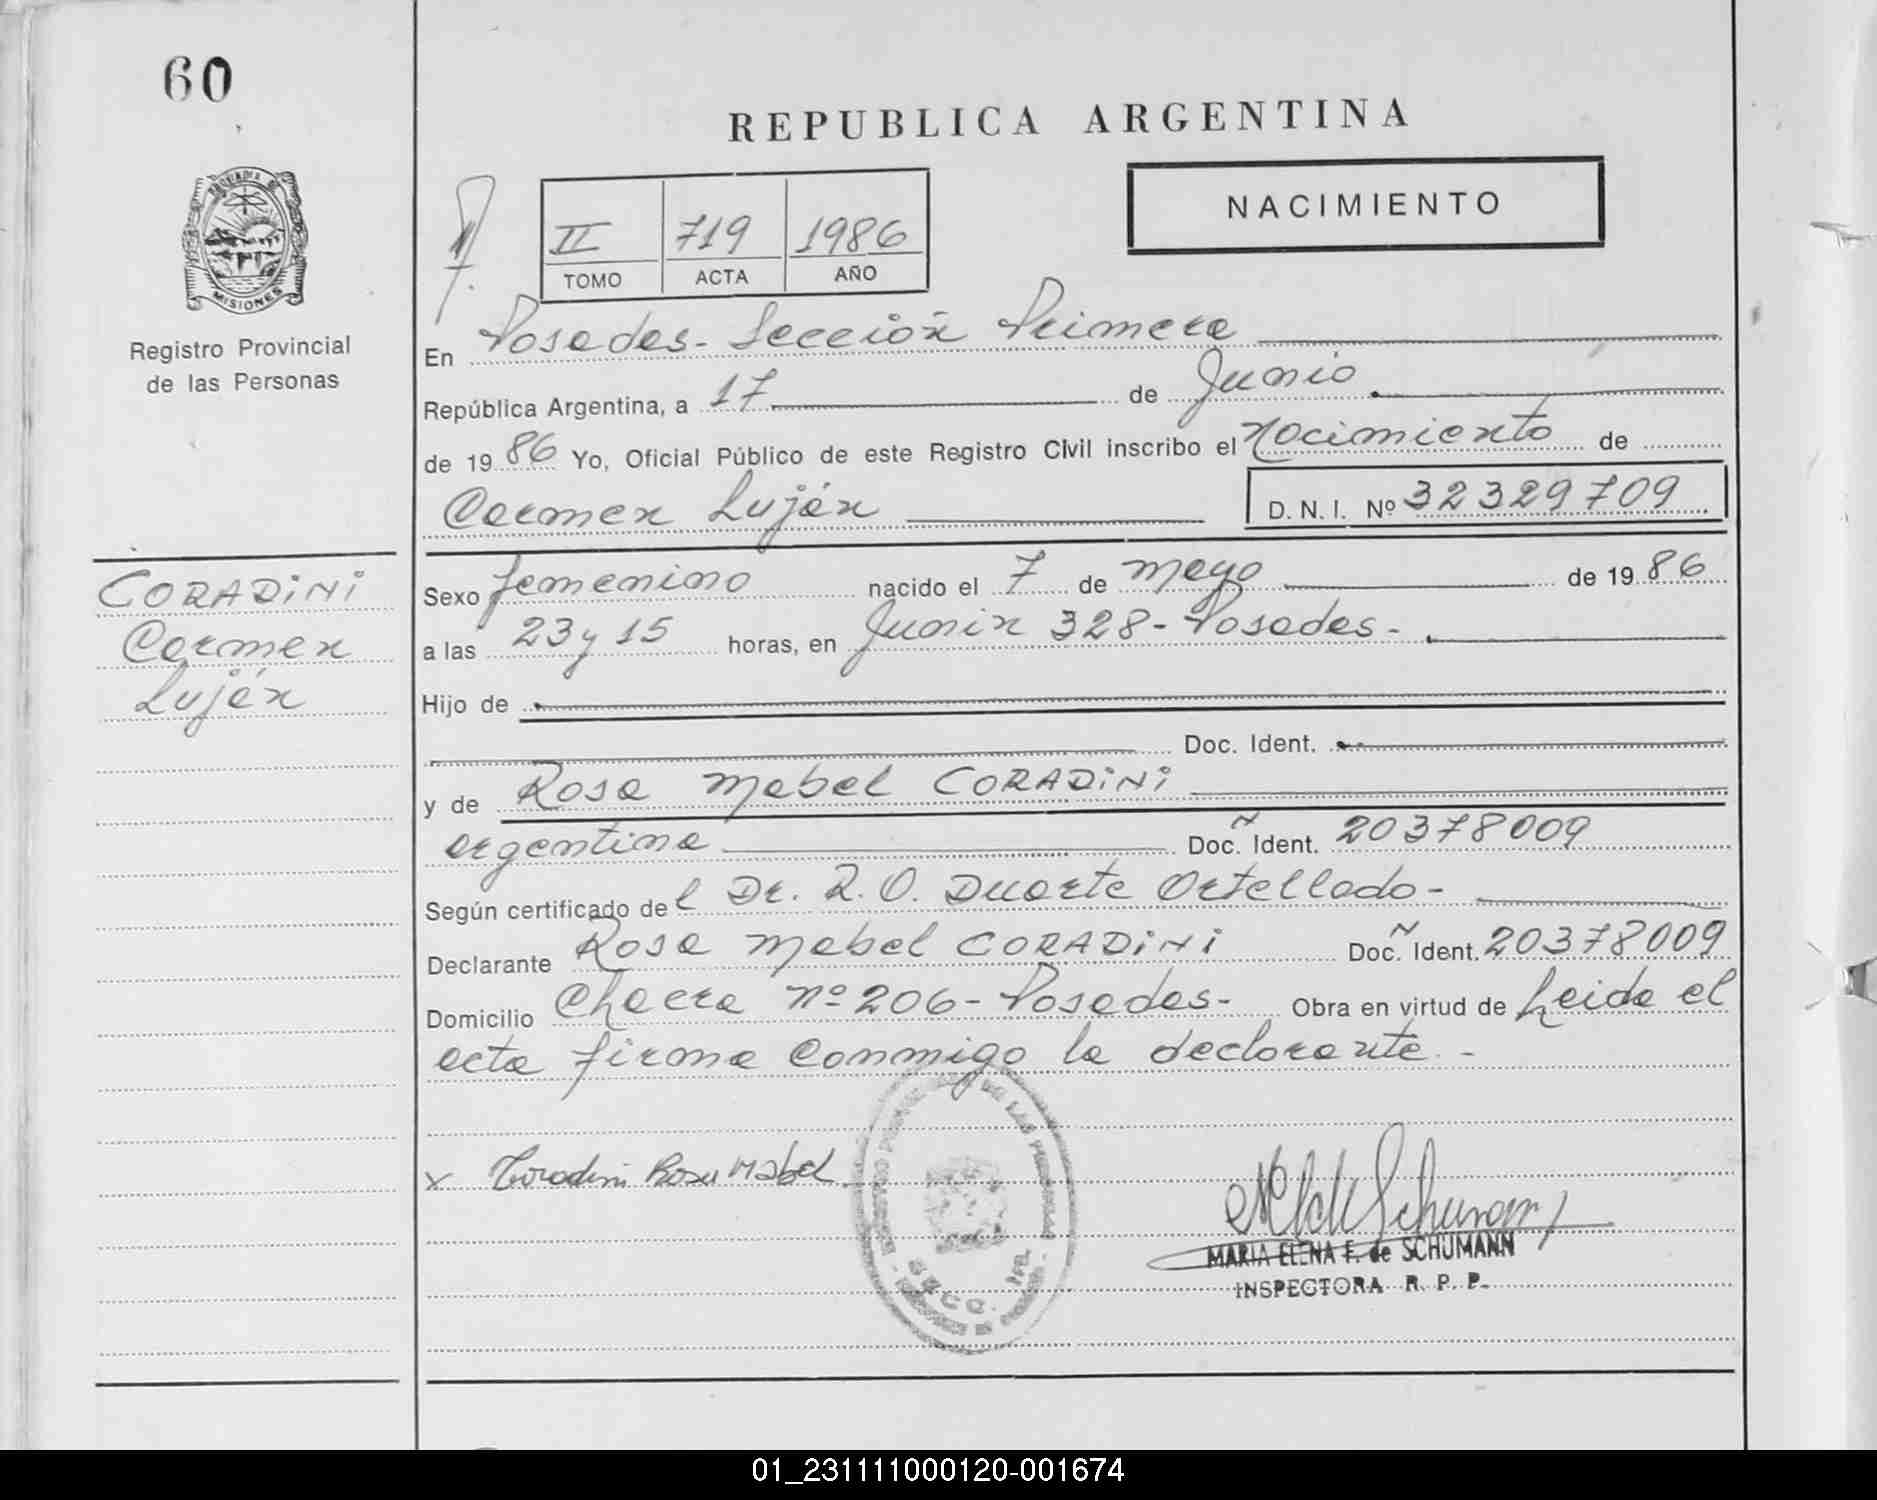 60
REPUBLICA ARGENTINA
NACIMIENTO
II 719 1986
TOMO ACTA AÑO
PROVINCIA DE
MISIONES
Registro Provincial
de las Personas
En Posadas - Sección Primera
República Argentina, a 17 de Junio
de 1986 Yo, Oficial Público de este Registro Civil inscribo el nacimiento de
Carmen Luján D.N.I. Nº 32329709
CORADiNi
Carmen
Luján
Sexo femenino nacido el 7 de mayo de 1986
a las 23 y 15 horas, en Junín 328 - Posadas -
Hijo de
Doc. Ident.
y de Rosa Mabel CORADiNi
argentina Doc. Ident. 20378009
Según certificado del Dr. R. O. Duarte Ortellado -
Declarante Rosa Mabel CORADiNi Doc. Ident. 20378009
Domicilio Chacra nº 206 - Posadas - Obra en virtud de Leida el
acta firma conmigo la declarante. -
x Coradini Rosa Mabel
DE LAS PERSONAS
SECC. 1ra.
MARIA ELENA F. de SCHUMANN
INSPECTORA R. P. P.
01_231111000120-001674